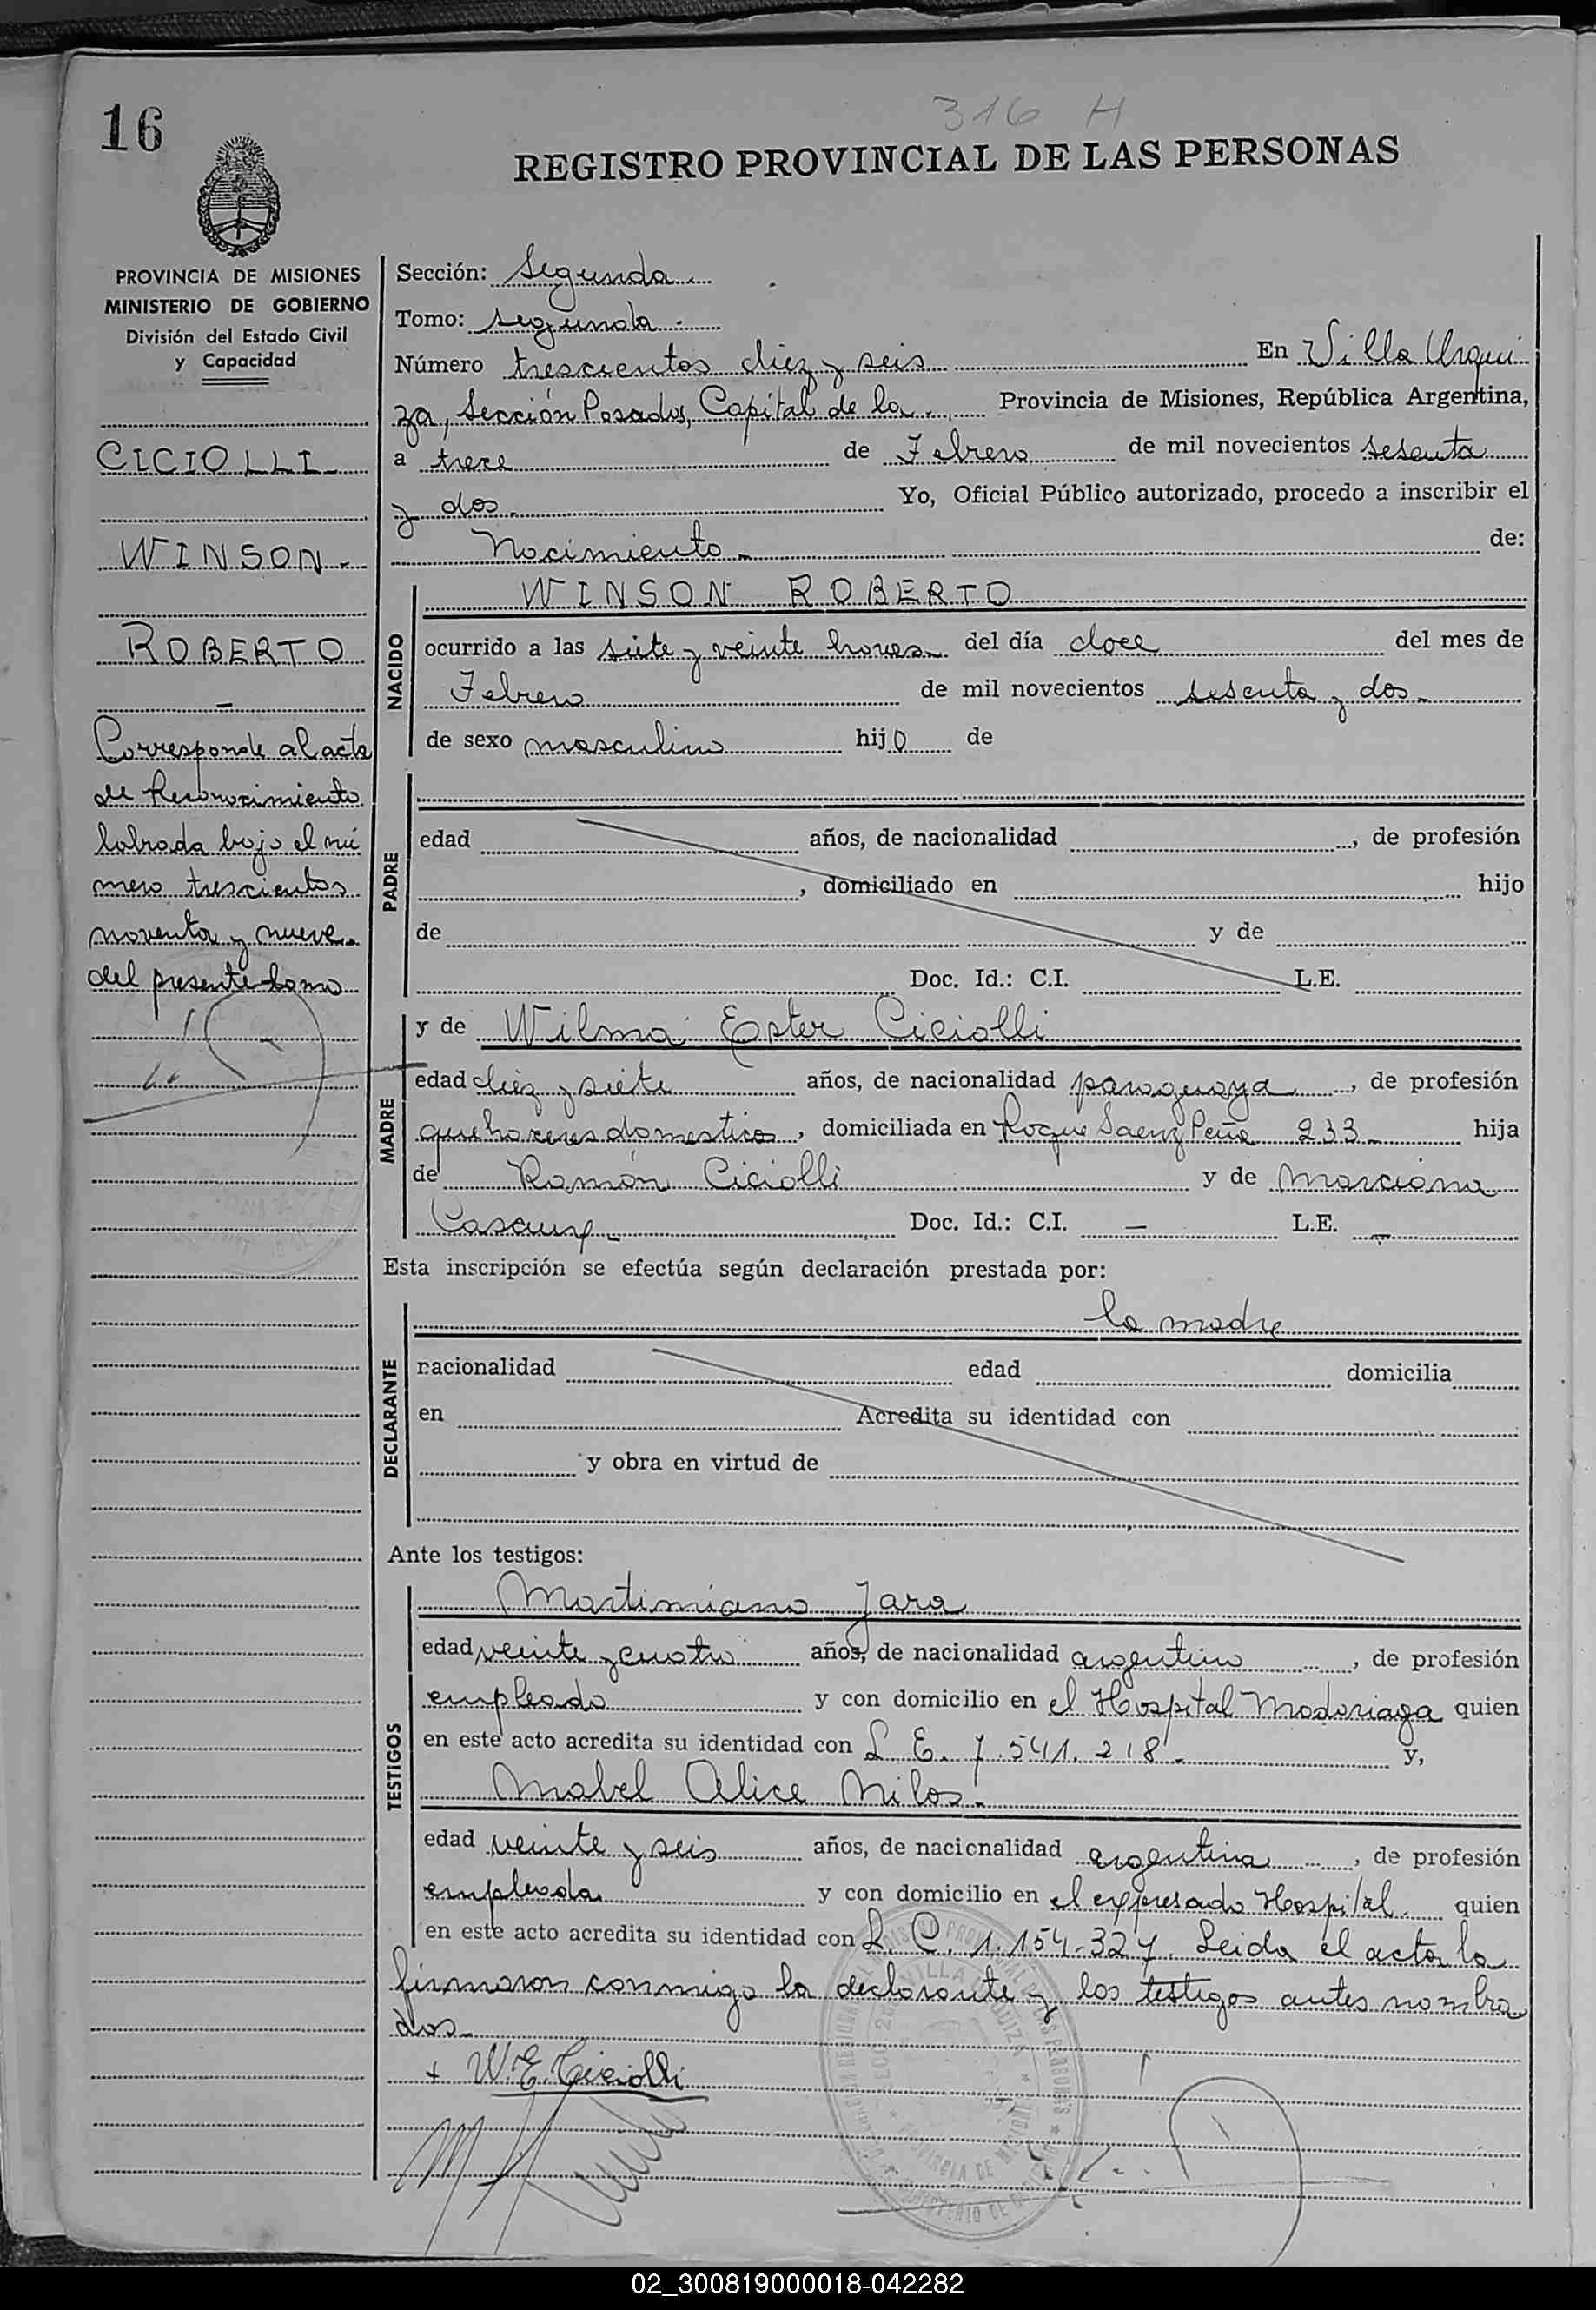 316 H
16
REGISTRO PROVINCIAL DE LAS PERSONAS
PROVINCIA DE MISIONES
MINISTERIO DE GOBIERNO
División del Estado Civil
y Capacidad
CICIOLLI
WINSON
ROBERTO
Corresponde al acta
de Reconocimiento
labrada bajo el nú
mero trescientos
noventa y nueve
del presente tomo
Sección: Segunda
Tomo: segundo
Número trescientos diez y seis En Villa Urqui
za, Sección Posadas, Capital de la Provincia de Misiones, República Argentina,
a trece de Febrero de mil novecientos sesenta
y dos. Yo, Oficial Público autorizado, procedo a inscribir el
Nacimiento de:
NACIDO
WINSON ROBERTO
ocurrido a las siete y veinte horas del día doce del mes de
Febrero de mil novecientos sesenta y dos
de sexo masculino hijo de
PADRE
edad años, de nacionalidad , de profesión
, domiciliado en hijo
de y de
Doc. Id.: C.I. L.E.
MADRE
y de Wilma Ester Ciciolli
edad diez y siete años, de nacionalidad paraguaya, de profesión
quehaceres domesticos, domiciliada en Roque Saenz Peña 233 hija
de Ramón Ciciolli y de Marciana
Doc. Id.: C.I. — L.E. —
Esta inscripción se efectúa según declaración prestada por:
DECLARANTE
la madre
nacionalidad edad domicilia
en Acredita su identidad con
y obra en virtud de
Ante los testigos:
TESTIGOS
Martimiano Jara
edad veinte y cuatro años, de nacionalidad argentino, de profesión
empleado y con domicilio en el Hospital Madariaga quien
en este acto acredita su identidad con L. E. 7.541.218 y,
Mabel Alice Milos
edad veinte y seis años, de nacionalidad argentina, de profesión
empleada y con domicilio en el expresado Hospital quien
en este acto acredita su identidad con L. C. 1.154.327. Leida el acta la
firmaron conmigo la declarante y los testigos antes nombra
dos
+ W.E. Ciciolli
02_300819000018-042282